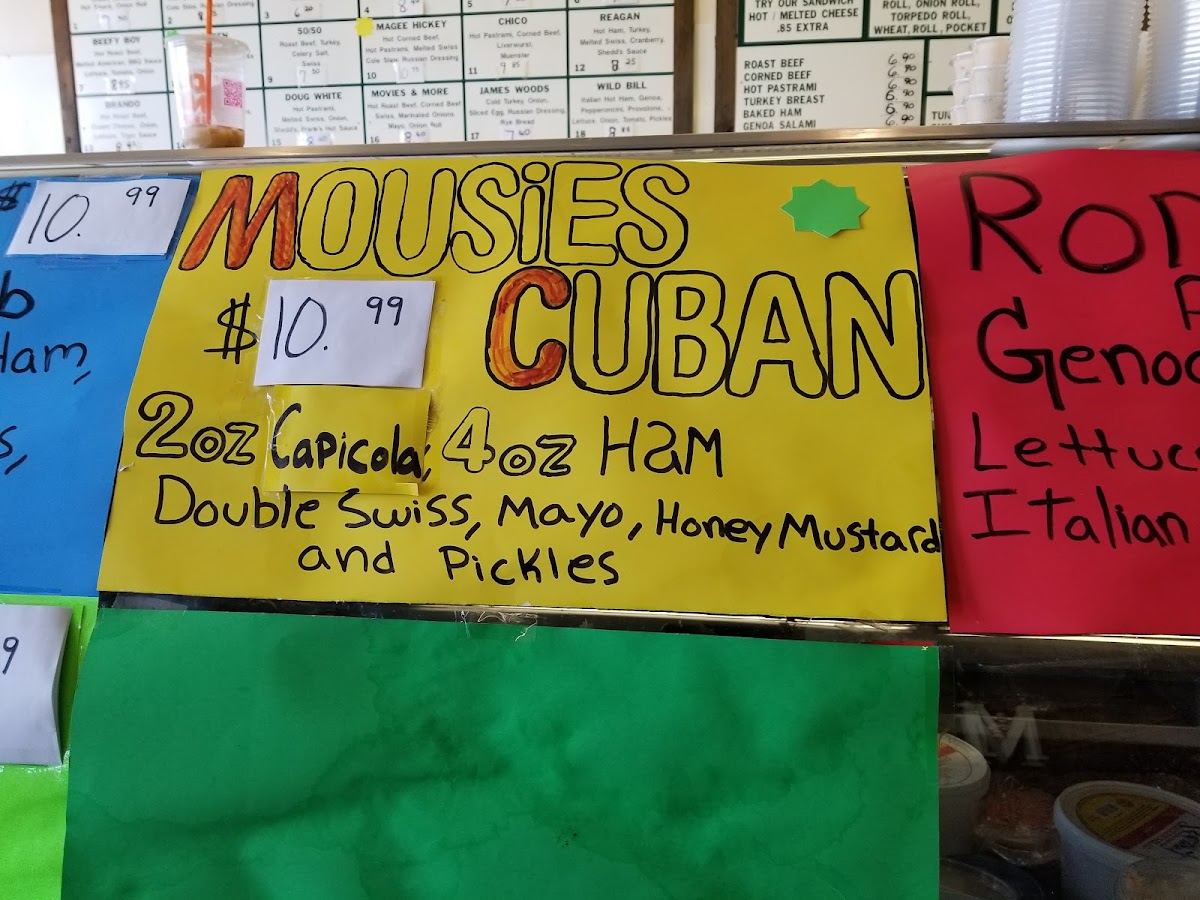 MAGEE HICKEY
Hot Corned Beef,
Hot Pastrami, Melted Swiss
Cole Slaw, Russian Dressing
CHICO
Hot Pastrami, Corned Beef,
Liverwurst,
Muenster
11
REAGAN
Hot Ham, Turkey,
Melted Swiss, Cranberry,
Shedd's Sauce
12 8 25
50/50
Roast Beef, Turkey,
Celery Salt,
Swiss
9
BEEFY BOY
Hot Roast Beef,
Melted American, BBQ Sauce
Lettuce, Tomato, Onion
7 8 95
BRANDO
Hot Roast Beef,
DOUG WHITE
Hot Pastrami,
Melted Swiss, Onion,
Shedd's, Frank's Hot Sauce
MOVIES & MORE
Hot Roast Beef, Corned Beef
Swiss, Marinated Onions
Mayo, Onion Roll
JAMES WOODS
Cold Turkey, Onion,
Sliced Egg, Russian Dressing,
Rye Bread
17 7 60
WILD BILL
Italian Hot Ham, Genoa,
Pepperoncini, Provolone,
Lettuce, Onion, Tomato, Pickles
18
TRY OUR SANDWICH
HOT / MELTED CHEESE
.85 EXTRA
ROLL, ONION ROLL,
TORPEDO ROLL,
WHEAT, ROLL, POCKET
ROAST BEEF 6.90
CORNED BEEF 6.90
HOT PASTRAMI 6.90
TURKEY BREAST 6.90
BAKED HAM 6.90
GENOA SALAMI 6.90
$10.99
b
Ham,
s,
9
MOUSiES
CUBAN
$10.99
2oz Capicola, 4oz Ham
Double Swiss, Mayo, Honey Mustard
and Pickles
Rom
Genoa
Lettuc
Italian
M